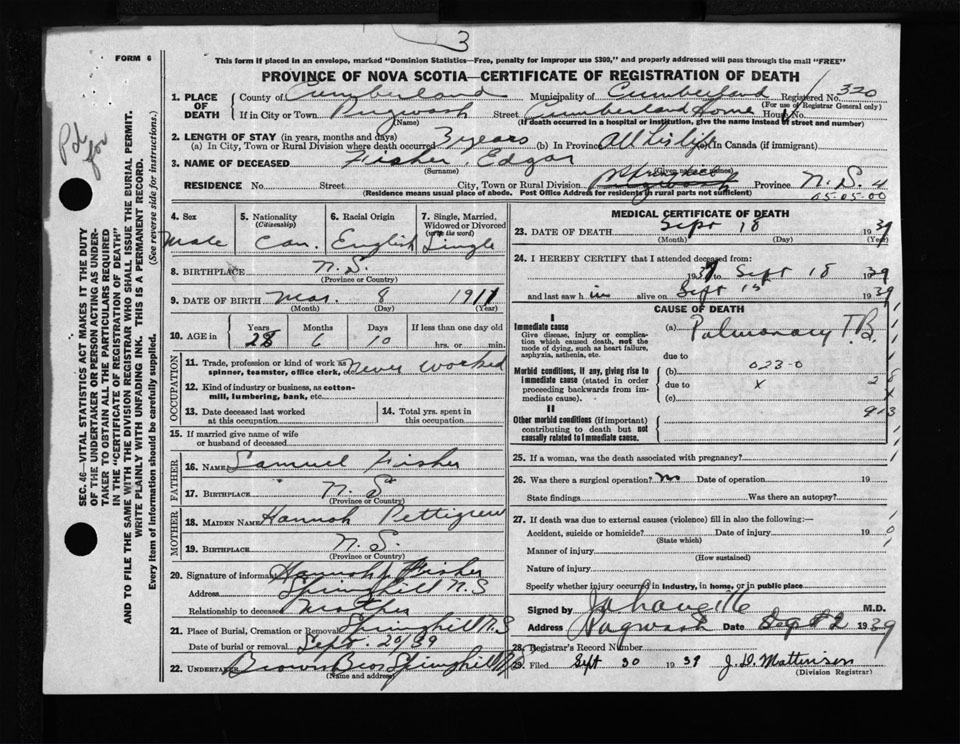 3
FORM 6
This form if placed in an envelope, marked "Dominion Statistics—Free, penalty for improper use $300," and properly addressed will pass through the mail "FREE"
PROVINCE OF NOVA SCOTIA—CERTIFICATE OF REGISTRATION OF DEATH
1. PLACE OF DEATH
County of Cumberland Municipality of Cumberland Registered No. 320
(For use of Registrar General only)
If in City or Town Pugwash Street Cumberland Home House No.
(Name) (If death occurred in a hospital or institution, give the name instead of street and number)
2. LENGTH OF STAY (in years, months and days)
(a) In City, Town or Rural Division where death occurred 3 years (b) In Province All his life (c) In Canada (if immigrant)
3. NAME OF DECEASED Fisher, Edgar
(Surname) (Given names)
RESIDENCE No. Street City, Town or Rural Division Pugwash Province N. S. 4
(Residence means usual place of abode. Post Office address for residents in rural parts not sufficient) 05-05-00
4. Sex Male
5. Nationality (Citizenship) Can.
6. Racial Origin English
7. Single, Married, Widowed or Divorced (write the word) Single
8. BIRTHPLACE N. S.
(Province or Country)
9. DATE OF BIRTH Mar. 8 1911
(Month) (Day) (Year)
10. AGE in Years 28 Months 6 Days 10 If less than one day old hrs. or min.
OCCUPATION
11. Trade, profession or kind of work as spinner, teamster, office clerk, etc. never worked
12. Kind of industry or business, as cotton-mill, lumbering, bank, etc.
13. Date deceased last worked at this occupation
14. Total yrs. spent in this occupation
15. If married give name of wife or husband of deceased
FATHER
16. NAME Samuel Fisher
17. BIRTHPLACE N. S.
(Province or Country)
MOTHER
18. MAIDEN NAME Hannah Pettigrew
19. BIRTHPLACE N. S.
(Province or Country)
20. Signature of informant Hannah Fisher
Address Springhill N. S
Relationship to deceased Mother
21. Place of Burial, Cremation or Removal Springhill N. S
Date of burial or removal Sept. 20/39
22. UNDERTAKER Brown Bros Springhill N.S
(Name and address)
MEDICAL CERTIFICATE OF DEATH
23. DATE OF DEATH Sept 18 1939
(Month) (Day) (Year)
24. I HEREBY CERTIFY that I attended deceased from:
1937 to Sept 18 1939
and last saw h im alive on Sept 1939
CAUSE OF DEATH
I
Immediate cause
Give disease, injury or complication which caused death, not the mode of dying, such as heart failure, asphyxia, asthenia, etc.
(a) Pulmonary T.B.
due to
Morbid conditions, if any, giving rise to immediate cause (stated in order proceeding backwards from immediate cause).
(b) 023-0
due to x
(c)
II
Other morbid conditions (if important) contributing to death but not causally related to immediate cause.
913
25. If a woman, was the death associated with pregnancy?
26. Was there a surgical operation? no Date of operation 19
State findings Was there an autopsy?
27. If death was due to external causes (violence) fill in also the following:—
Accident, suicide or homicide? Date of injury 19
(State which)
Manner of injury
(How sustained)
Nature of injury
Specify whether injury occurred in industry, in home, or in public place
Signed by M.D.
Address Pugwash Date Sept 1939
28. Registrar's Record Number
29. Filed Sept 30 1939 J. D. Mattinson
(Division Registrar)
SEC. 46—VITAL STATISTICS ACT MAKES IT THE DUTY OF THE UNDERTAKER OR PERSON ACTING AS UNDERTAKER TO OBTAIN ALL THE PARTICULARS REQUIRED IN THE "CERTIFICATE OF REGISTRATION OF DEATH" AND TO FILE THE SAME WITH THE DIVISION REGISTRAR WHO SHALL ISSUE THE BURIAL PERMIT.
WRITE PLAINLY WITH UNFADING INK. THIS IS A PERMANENT RECORD.
Every item of information should be carefully supplied. (See reverse side for instructions.)